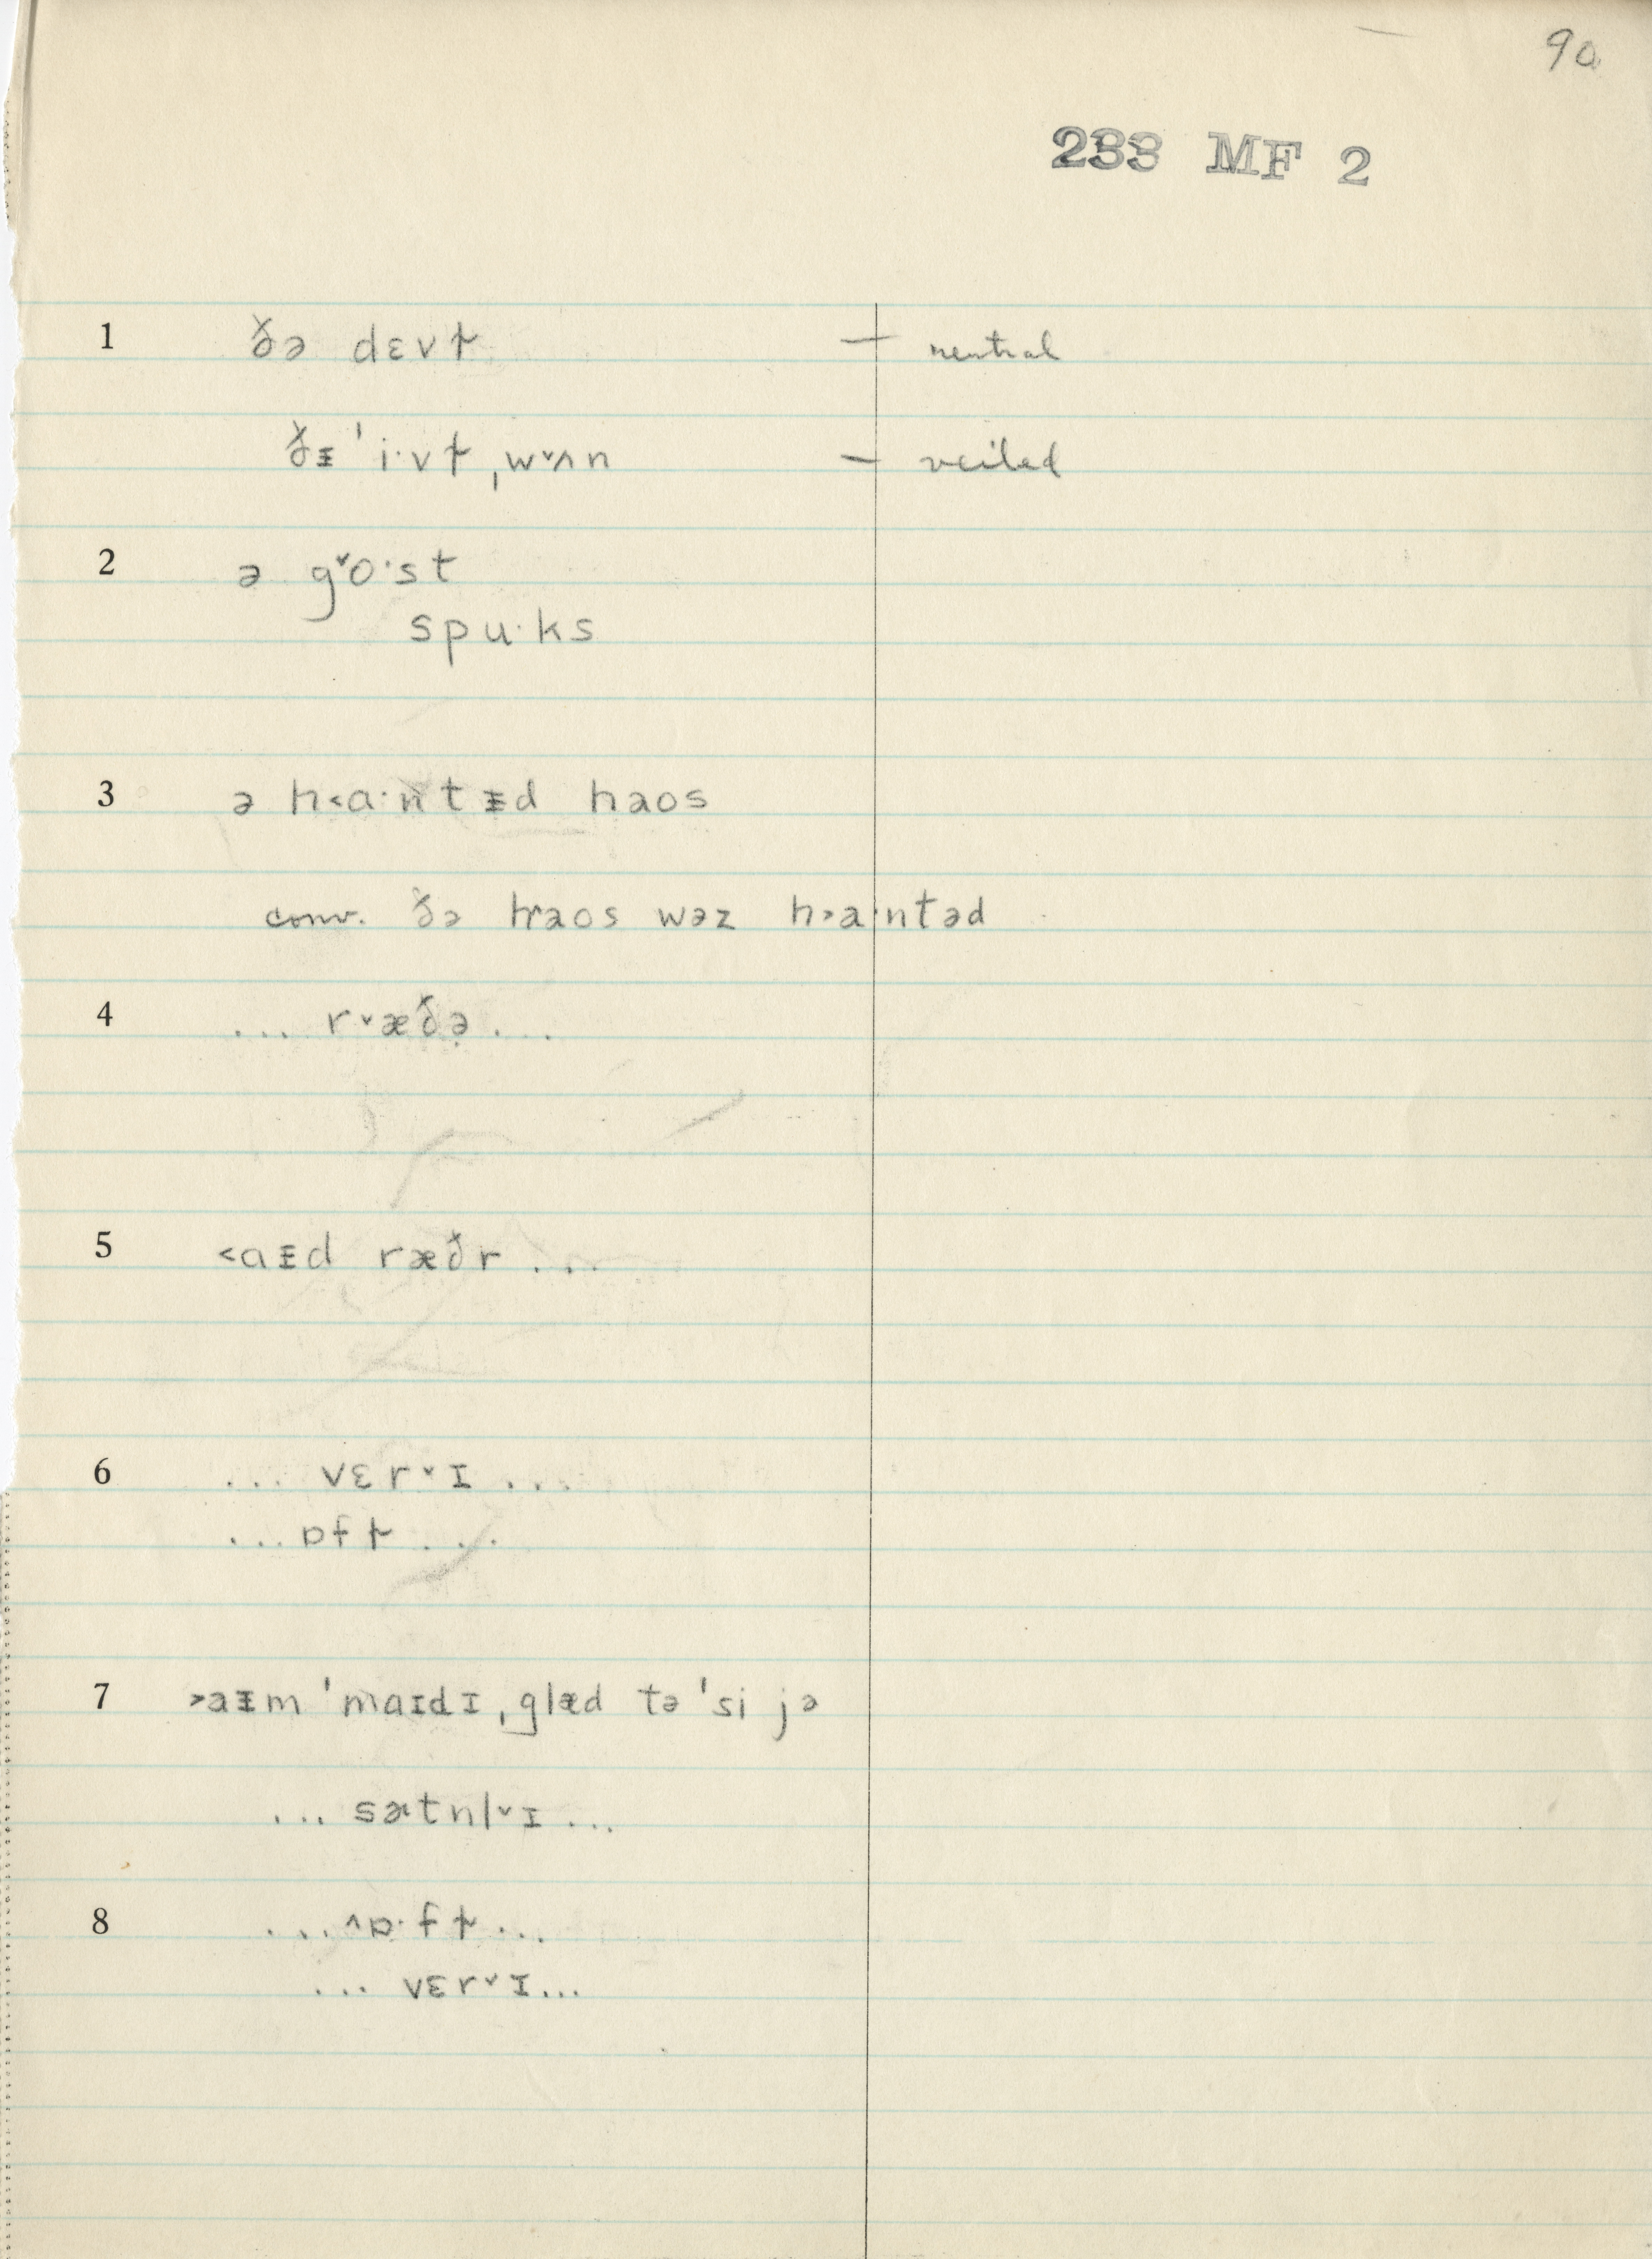 90
233 MF 2
1 ðə dɛvɫ — neutral
ðᵻ ˈi·vɫ ˌw˅ʌn — veiled
2 ə g˅o·st
spu·ks
3 ə h˂ɑ·ntᵻd haos
conv. ðə haos wəz h˃a·ntəd
4 ... r˅æðə̣ ...
5 ˂ɑᵻd ræðr ...
6 ... vɛr˅ɪ ...
... ɒfɫ ...
7 ˃aᵻm ˈmaɪdɪ ˌglæd tə ˈsi jə
... sɚtnl˅ɪ ...
8 ... ˄ɒ·fɫ ...
... vɛr˅ɪ ...